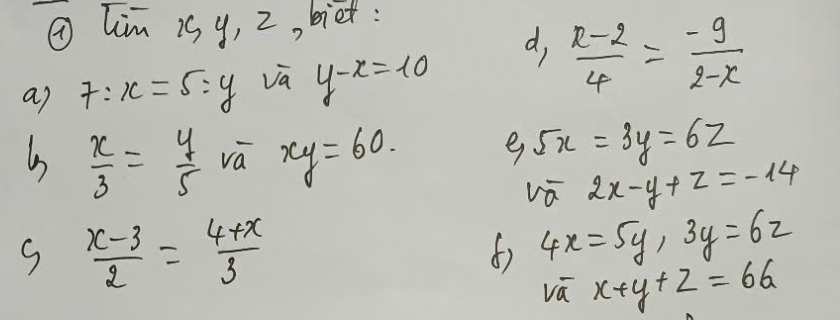 ① Tìm x, y, z, biết:
a) 7 : x = 5 : y và y - x = 10
b) x/3 = y/5 và xy = 60.
c) (x-3)/2 = (4+x)/3
d, (x-2)/4 = -9/(2-x)
e, 5x = 3y = 6z
và 2x - y + z = -14
f) 4x = 5y, 3y = 6z
và x + y + z = 66